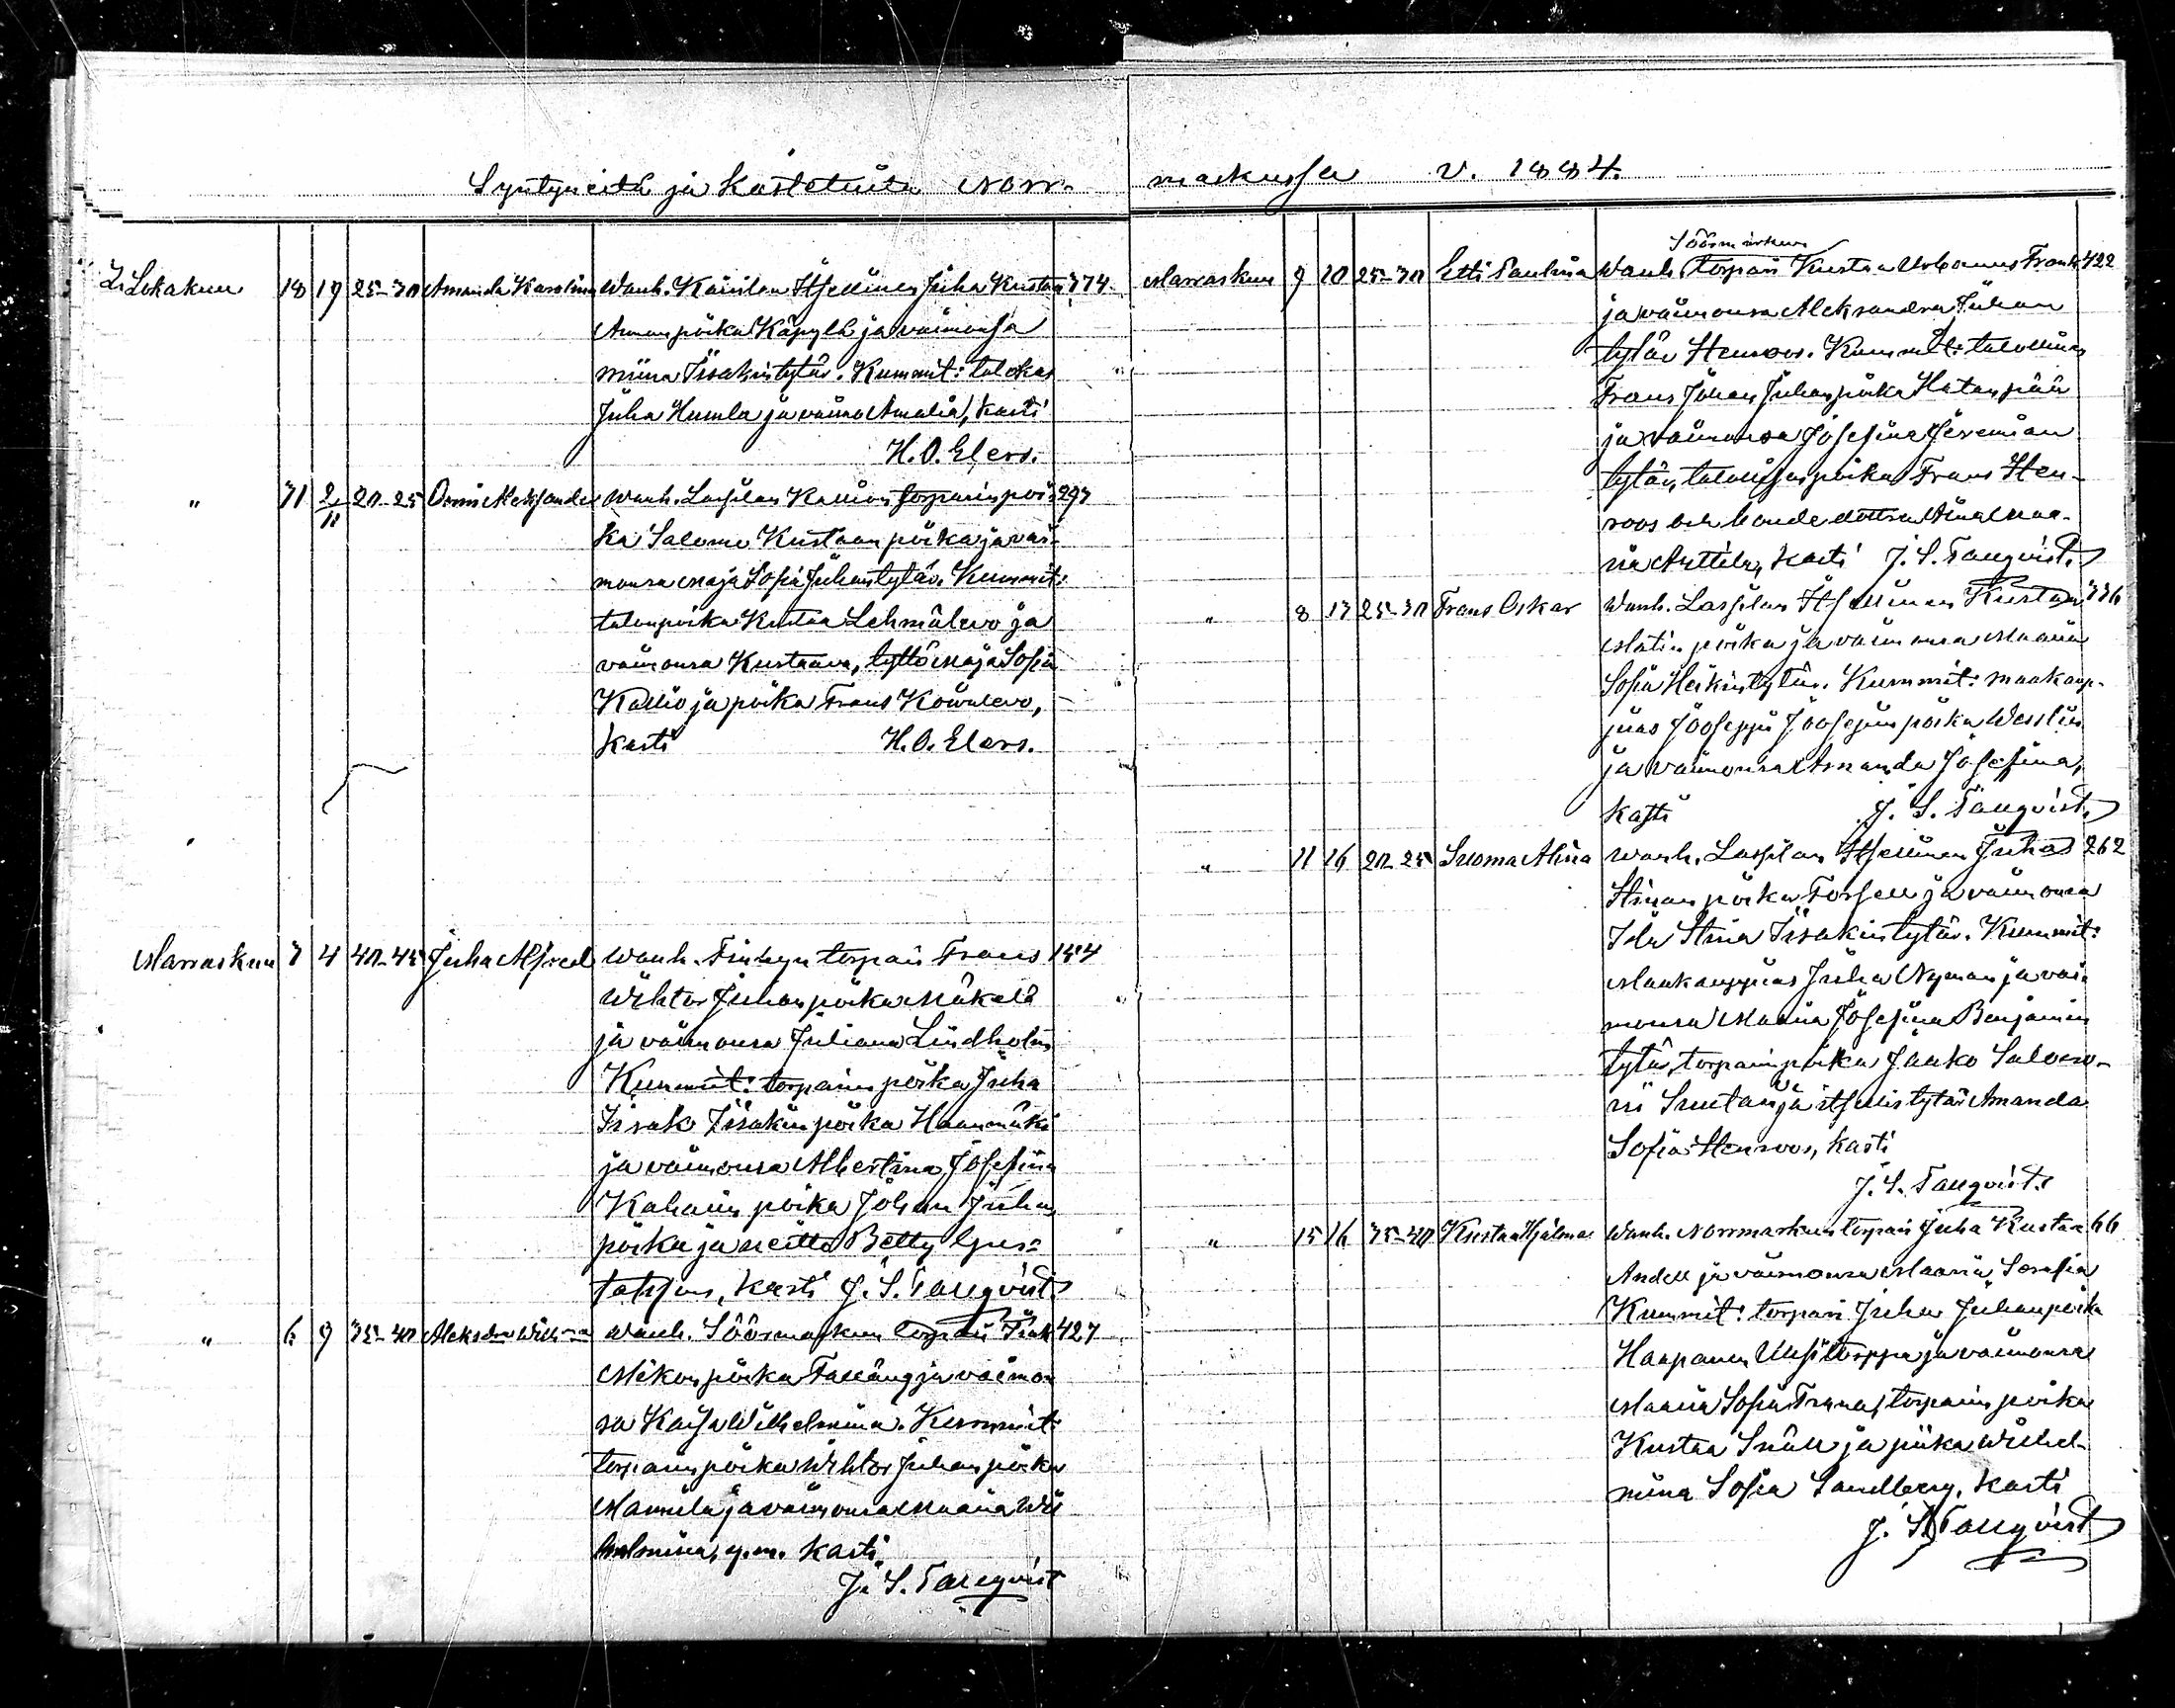 Syntyneitä ja kastetuita Norr-
markussa v. 1884.
Lokakuu 18 19 25-30 Amanda Karolina Wanh. Itsellinen Juha Kustaa 374
Annanpoika Käpylä ja vaimonsa
Miina Iisakintytär. Kummit: talokas
Juha Humla ja vaimo Amalia, kasti
H. O. Elers.
" 31 2/11 20-25 Onni Aleksander Wanh. Lassilan Kallion torparin poi- 297
ka Salomo Kustaanpoika ja vai-
monsa Maja Sofia Juhantytär. Kummit:
talonpoika Kustaa ja
vaimonsa Kustaava, tyttö Maja Sofia
Kallio ja poika Frans
kasti H. O. Elers.
Marraskuu 3 4 40-45 Juha Alfred Wanh. torpari Frans 154
Wihtor Juhanpoika Mäkelä
ja vaimonsa Juliana Lindholm
Kummit: torparin poika Juha
Iisak Iisakinpoika Haanmäki
ja vaimonsa Albertina Josefina
poika Johan Juhan
poika ja neitto Betty Gus-
tafsson, kasti J. S. Tallqvist.
" 6 9 35-40 Aleksdra Wilh-na Wanh. Söörmarkun torpari Isak 427
Mikonpoika ja vaimon
sa Kaisa Wilhelmiina. Kummit:
torparin poika Wihtor Juhanpoika
Mannila ja vaimonsa Maria Wil
helmiina, y.m. kasti
J. S. Tallqvist
Söörmarkun
Marraskuu 9 10 25-30 Etti Pauliina Wanh. torpari Kustaa Urbanus Frank 422
ja vaimonsa Aleksandra Juhan
tytär Henroos. Kummit: talollinen
Frans Johan Juhanpoika Hatanpää
ja vaimonsa Josefina Jeremian
tytär, talollisen poika Frans Hen-
roos och bonde dottren Aina Maa-
ria Anttila, kasti J. S. Tallqvist.
" 8 13 25-30 Frans Oskar Wanh. Lassilan Itsellinen Kustaa 336
Matin poika ja vaimonsa Maaria
Sofia Heikintytär. Kummit: maakaup-
pias Jooseppi Joosepin poika Wesslin
ja vaimonsa Amanda Josefina,
kasti J. S. Tallqvist.
" 11 16 20-25 Suoma Alina Wanh. Lassilan Itsellinen Juha 262
Stinan poika Forsell ja vaimonsa
Ida Stina Iisakintytär. Kummit:
Maakauppias Juha Nyman ja vai-
monsa Maaria Josefina Benjamin
tytär, torparin poika Jaako
ja itsellis tytär Amanda
Sofia Henroos, kasti
J. S. Tallqvist.
" 15 16 35-40 Kustaa Hjalmar Wanh. Norrmarkun torpari Juha Kustaa 66
Andell ja vaimonsa Maaria Serafia
Kummit: torpari Juha Juhanpoika
Haapanen Uusitorppa ja vaimonsa
Maaria Sofia Frans, torparin poika
Kustaa Snäll ja piika Wilhel-
miina Sofia Sandberg, kasti
J. S. Tallqvist